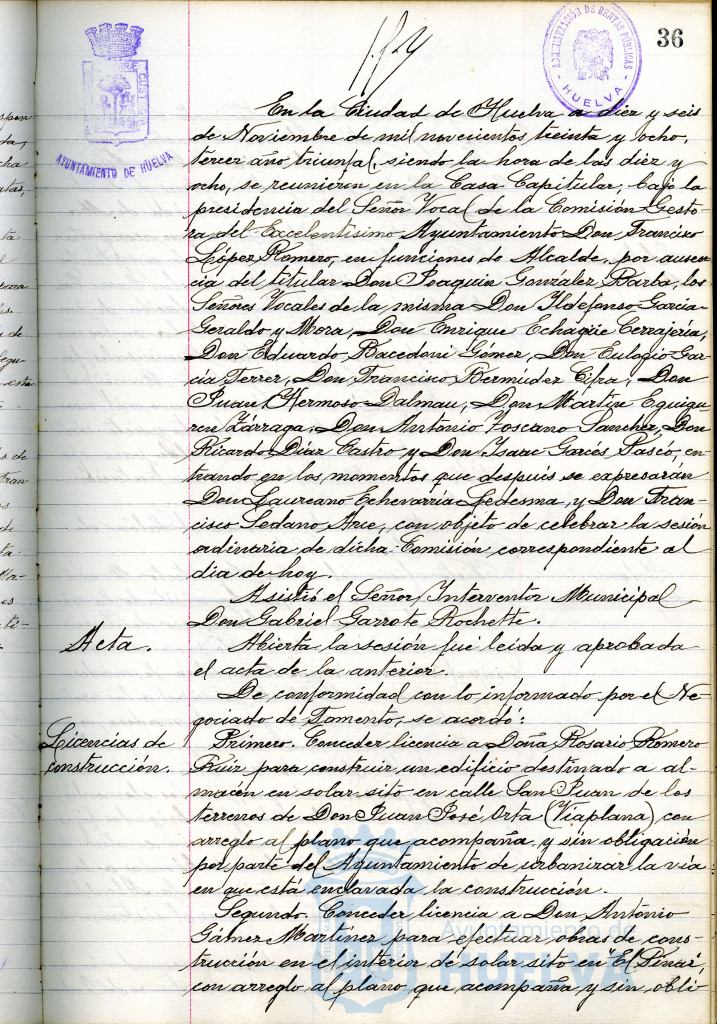 36
ADMINISTRACIÓN DE RENTAS PÚBLICAS
HUELVA
AYUNTAMIENTO DE HUELVA
En la Ciudad de Huelva a diez y seis
de Noviembre de mil novecientos treinta y ocho,
tercer año triunfal, siendo la hora de las diez y
ocho, se reunieron en la Casa Capitular, bajo la
presidencia del Señor Vocal de la Comisión Gesto-
ra del Excelentísimo Ayuntamiento Don Francisco
López Romero, en funciones de Alcalde, por ausen-
cia del titular Don Joaquín González Barba, los
Señores Vocales de la misma Don Ildefonso García
Geraldo y Mora, Don Enrique Echagüe Cerrajería,
Don Eduardo Bacedoni Gómez, Don Eulogio Gar-
cía Ferrer, Don Francisco Bermúdez Cifra, Don
Juan Hermoso Dalmau, Don Martín Eguigu-
ren Zárraga, Don Antonio Toscano Sánchez, Don
Ricardo Díaz Castro, y Don Isaac Garcés Pasco, en-
trando en los momentos que después se expresarán
Don Laureano Echevarría Ledesma, y Don Fran-
cisco Sedano Arce, con objeto de celebrar la sesión
ordinaria de dicha Comisión correspondiente al
dia de hoy.
Asistió el Señor Interventor Municipal
Don Gabriel Garrote Rochette.
Acta.
Abierta la sesión fué leida y aprobada
el acta de la anterior.
De conformidad con lo informado por el Ne-
gociado de Fomento, se acordó:
Licencias de
construcción.
Primero. Conceder licencia a Doña Rosario Romero
Ruiz para construir un edificio destinado a al-
macén en solar sito en calle San Juan de los
terrenos de Don Juan José Orta (Viaplana), con
arreglo al plano que acompaña y sin obligación
por parte del Ayuntamiento de urbanizar la vía
en que está enclavada la construcción.
Segundo. Conceder licencia a Don Antonio
Gámez Martínez para efectuar obras de cons-
trucción en el interior de solar sito en "El Pinar",
con arreglo al plano que acompaña y sin obli
Ayuntamiento de
HUELVA